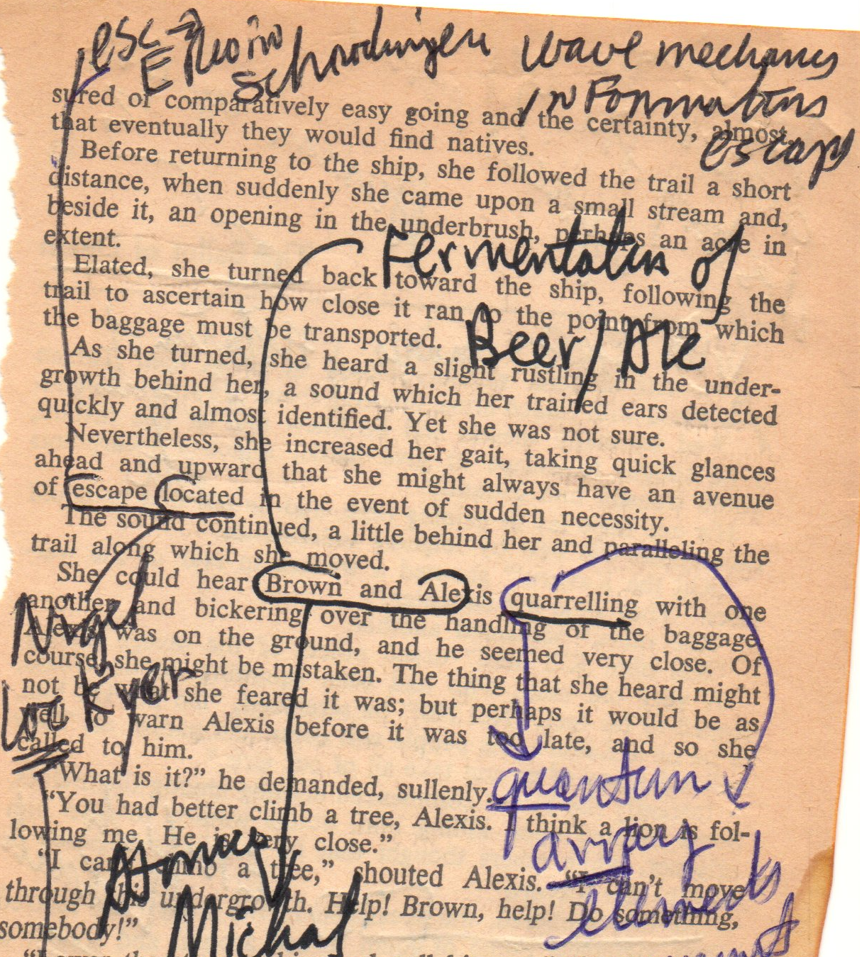 esc→ Erwin Schrodingers wave mechanics
informations
escape
sured of comparatively easy going and the certainty, almost
that eventually they would find natives.
Before returning to the ship, she followed the trail a short
distance, when suddenly she came upon a small stream and,
beside it, an opening in the underbrush, perhaps an acre in
extent.
Fermentation of
Elated, she turned back toward the ship, following the
trail to ascertain how close it ran to the point from which
the baggage must be transported.
Beer/Ale
As she turned, she heard a slight rustling in the under-
growth behind her, a sound which her trained ears detected
quickly and almost identified. Yet she was not sure.
Nevertheless, she increased her gait, taking quick glances
ahead and upward that she might always have an avenue
of escape located in the event of sudden necessity.
The sound continued, a little behind her and paralleling the
trail along which she moved.
She could hear Brown and Alexis quarrelling with one
another and bickering over the handling of the baggage.
was on the ground, and he seemed very close. Of
course, she might be mistaken. The thing that she heard might
not be what she feared it was; but perhaps it would be as
well to warn Alexis before it was too late, and so she
called to him.
Nigel
Lockyer
"What is it?" he demanded, sullenly.
quantum
"You had better climb a tree, Alexis. I think a lion is fol-
lowing me. He is very close."
array
"I can't climb a tree," shouted Alexis. "I can't move
through this undergrowth. Help! Brown, help! Do something,
somebody!"
elements
Michal